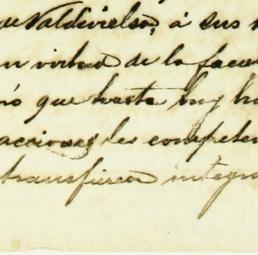 de Valdivielso, á sus
en virtud de la facu
que hasta hoy ha
acciones les competen
transfieren integra